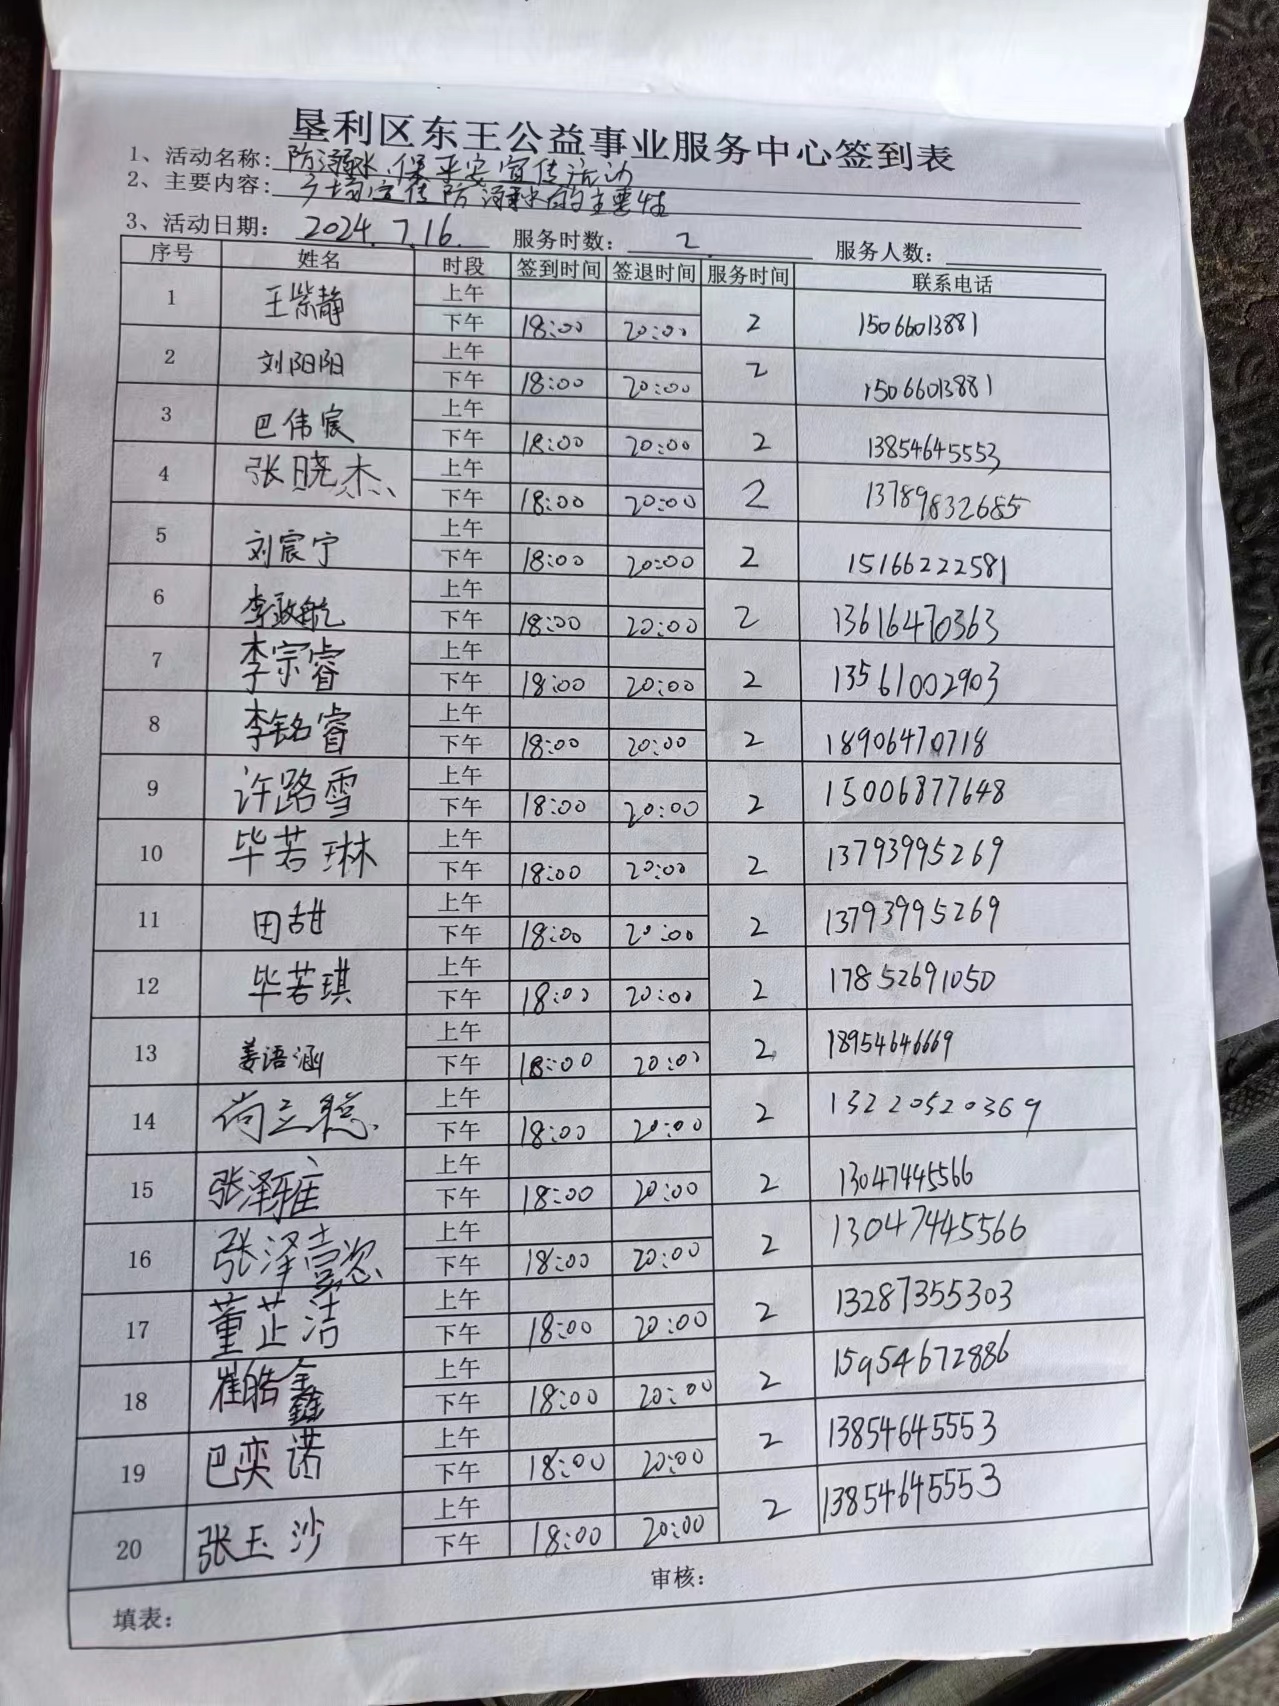 垦利区东王公益事业服务中心签到表
1、活动名称: 防溺水、保平安宣传活动
2、主要内容: 广场宣传防溺水的主要性
3、活动日期: 2024.7.16. 服务时数: 2 服务人数:
序号 姓名 时段 签到时间 签退时间 服务时间 联系电话
1 王紫静 上午 下午 18:00 20:00 2 15066013881
2 刘阳阳 上午 下午 18:00 20:00 2 15066013881
3 巴伟宸 上午 下午 18:00 20:00 2 13854645553
4 张晓杰 上午 下午 18:00 20:00 2 13789832685
5 刘宸宁 上午 下午 18:00 20:00 2 15166222581
6 李政航 上午 下午 18:00 20:00 2 13616470363
7 李宗睿 上午 下午 18:00 20:00 2 13561002903
8 李铭睿 上午 下午 18:00 20:00 2 18906470718
9 许路雪 上午 下午 18:00 20:00 2 15006877648
10 毕若琳 上午 下午 18:00 20:00 2 13793995269
11 田甜 上午 下午 18:00 20:00 2 13793995269
12 毕若琪 上午 下午 18:00 20:00 2 17852691050
13 姜语涵 上午 下午 18:00 20:00 2 18954646669
14 尚立聪 上午 下午 18:00 20:00 2 13220520369
15 张泽 上午 下午 18:00 20:00 2 13047445566
16 张泽懿 上午 下午 18:00 20:00 2 13047445566
17 董芷洁 上午 下午 18:00 20:00 2 13287355303
18 崔皓鑫 上午 下午 18:00 20:00 2 15954672886
19 巴奕诺 上午 下午 18:00 20:00 2 13854645553
20 张玉沙 上午 下午 18:00 20:00 2 13854645553
填表: 审核: